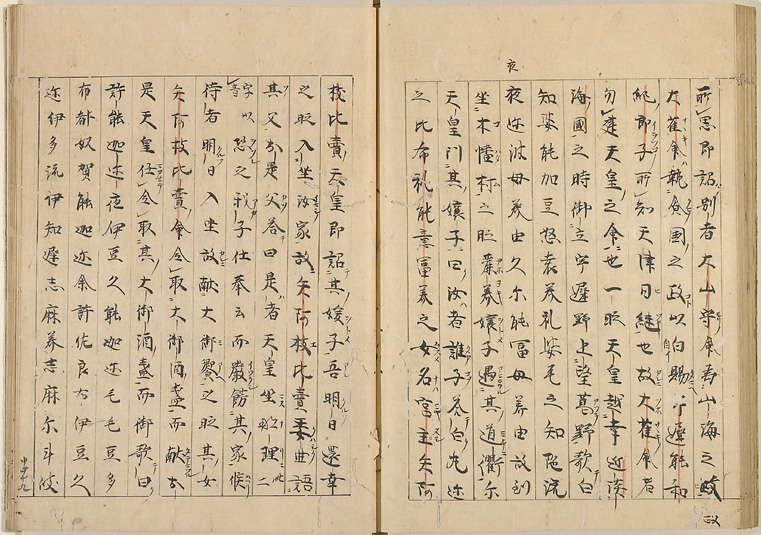 夜
所思即詔別者大山守命爲山海之政
大雀命執食国之政以白賜宇遅能和
紀郎子所知天津日継也故大雀命者
勿違天皇之命也一時天皇越幸近淡
海國之時御立宇遅野上望葛野歌曰
知婆能加豆怒袁美礼婆毛々知陀流
夜迩波母美由久尓能冨母美由故到
坐木幡村之時麗美嬢子遇其道衢尓
天皇問其嬢子曰汝者誰子答白丸迩
之比布礼能意冨美之女名宮主矢河
枝比賣天皇即詔其嬢子吾明日還幸
之時入坐汝家故矢河枝比賣委曲語
其父於是父答曰是者天皇坐那理此二
字以音恐之我子仕奉云而厳餝其家候
待者明日入坐故献大御饗之時其女
矢河枝比賣命令取大御酒盞而献於
是天皇任令取其大御酒盞而御歌曰
許能迦迩夜伊豆久能迦迩毛毛豆多
布都奴賀能迦迩余許佐良布伊豆久
迩伊多流伊知遅志麻美志麻尓斗岐